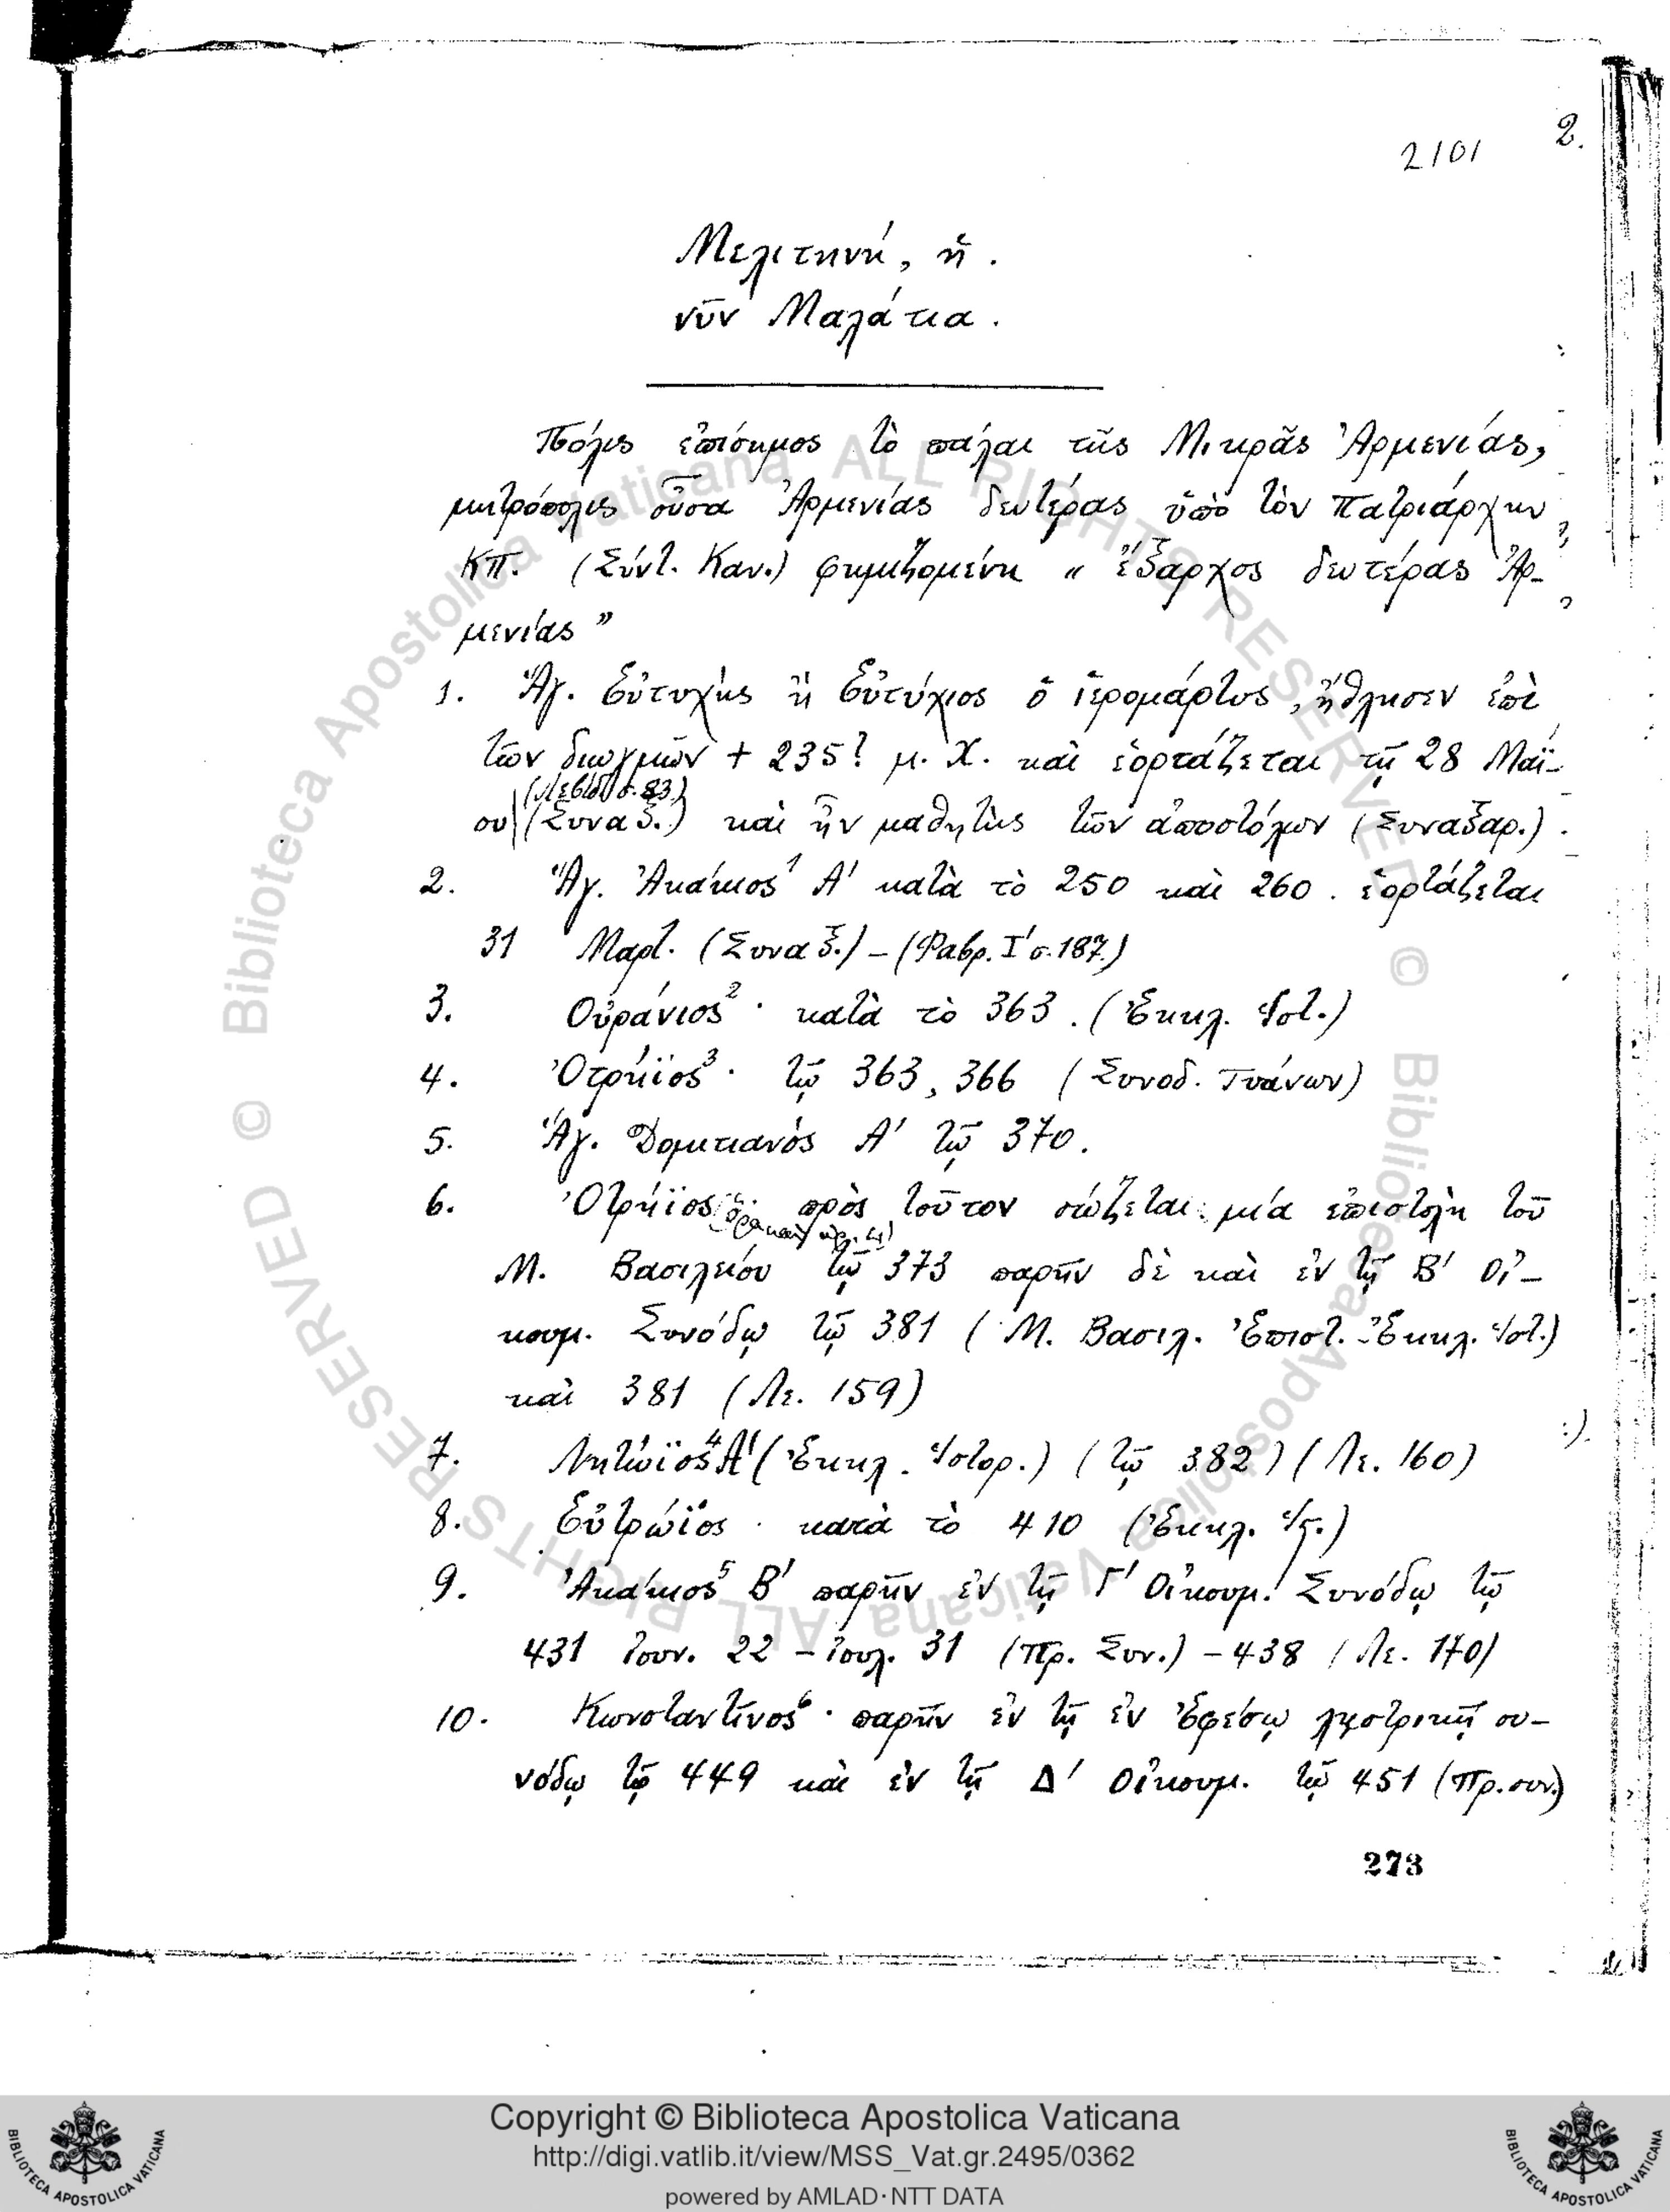 2.
2101
Μελιτηνή, ἡ.
νῦν Μαλάτια.
Πόλις ἐπίσημος τὸ πάλαι τῆς Μικρᾶς Ἀρμενίας,
μητρόπολις οὖσα Ἀρμενίας δευτέρας ὑπὸ τὸν Πατριάρχην
ΚΠ. (Σύντ. Καν.) φημιζομένη « ἔξαρχος δευτέρας Ἀρ-
μενίας »
1. Ἅγ. Εὐτυχὴς ἢ Εὐτύχιος ὁ ἱερομάρτυς, ἤθλησεν ἐπὶ
τῶν διωγμῶν + 235? μ. Χ. καὶ ἑορτάζεται τῇ 28 Μαΐ-
ου (Συναξ.) καὶ ἦν μαθητὴς τῶν ἀποστόλων (Συναξαρ.).
2. Ἅγ. Ἀκάκιος¹ Α' κατὰ τὸ 250 καὶ 260. ἑορτάζεται
31 Μαρτ. (Συναξ.) – (Φαβρ. Ι' σ. 187.)
3. Οὐράνιος² · κατὰ τὸ 363. (Ἐκκλ. Ἱστ.)
4. Ὀτρήϊος³ · τῷ 363, 366 (Συνοδ. Τυάνων)
5. Ἅγ. Δομιτιανός Α' τῷ 370.
6. Ὀτρήϊος · πρὸς τοῦτον σώζεται μία ἐπιστολὴ τοῦ
Μ. Βασιλείου τῷ 373 παρῆν δὲ καὶ ἐν τῇ Β' Οἰ-
κουμ. Συνόδῳ τῷ 381 (Μ. Βασιλ. Ἐπιστ. Ἐκκλ. Ἱστ.)
καὶ 381 (Λε. 159)
7. Λητώϊος⁴ Α' (Ἐκκλ. Ἱστορ.) (τῷ 382) (Λε. 160)
8. Εὐτρώϊος · κατὰ τὸ 410 (Ἐκκλ. Ἱστ.)
9. Ἀκάκιος⁵ Β' παρῆν ἐν τῇ Γ' Οἰκουμ. Συνόδῳ τῷ
431 Ἰουν. 22 – Ἰουλ. 31 (Πρ. Συν.) – 438 (Λε. 170)
10. Κωνσταντῖνος⁶ · παρῆν ἐν τῇ ἐν Ἐφέσῳ λῃστρικῇ συ-
νόδῳ τῷ 449 καὶ ἐν τῇ Δ' Οἰκουμ. τῷ 451 (Πρ. συν.)
273
Copyright © Biblioteca Apostolica Vaticana
http://digi.vatlib.it/view/MSS_Vat.gr.2495/0362
powered by AMLAD·NTT DATA
BIBLIOTECA APOSTOLICA VATICANA
BIBLIOTECA APOSTOLICA VATICANA
© Biblioteca Apostolica Vaticana ALL RIGHTS RESERVED © Biblioteca Apostolica Vaticana ALL RIGHTS RESERVED